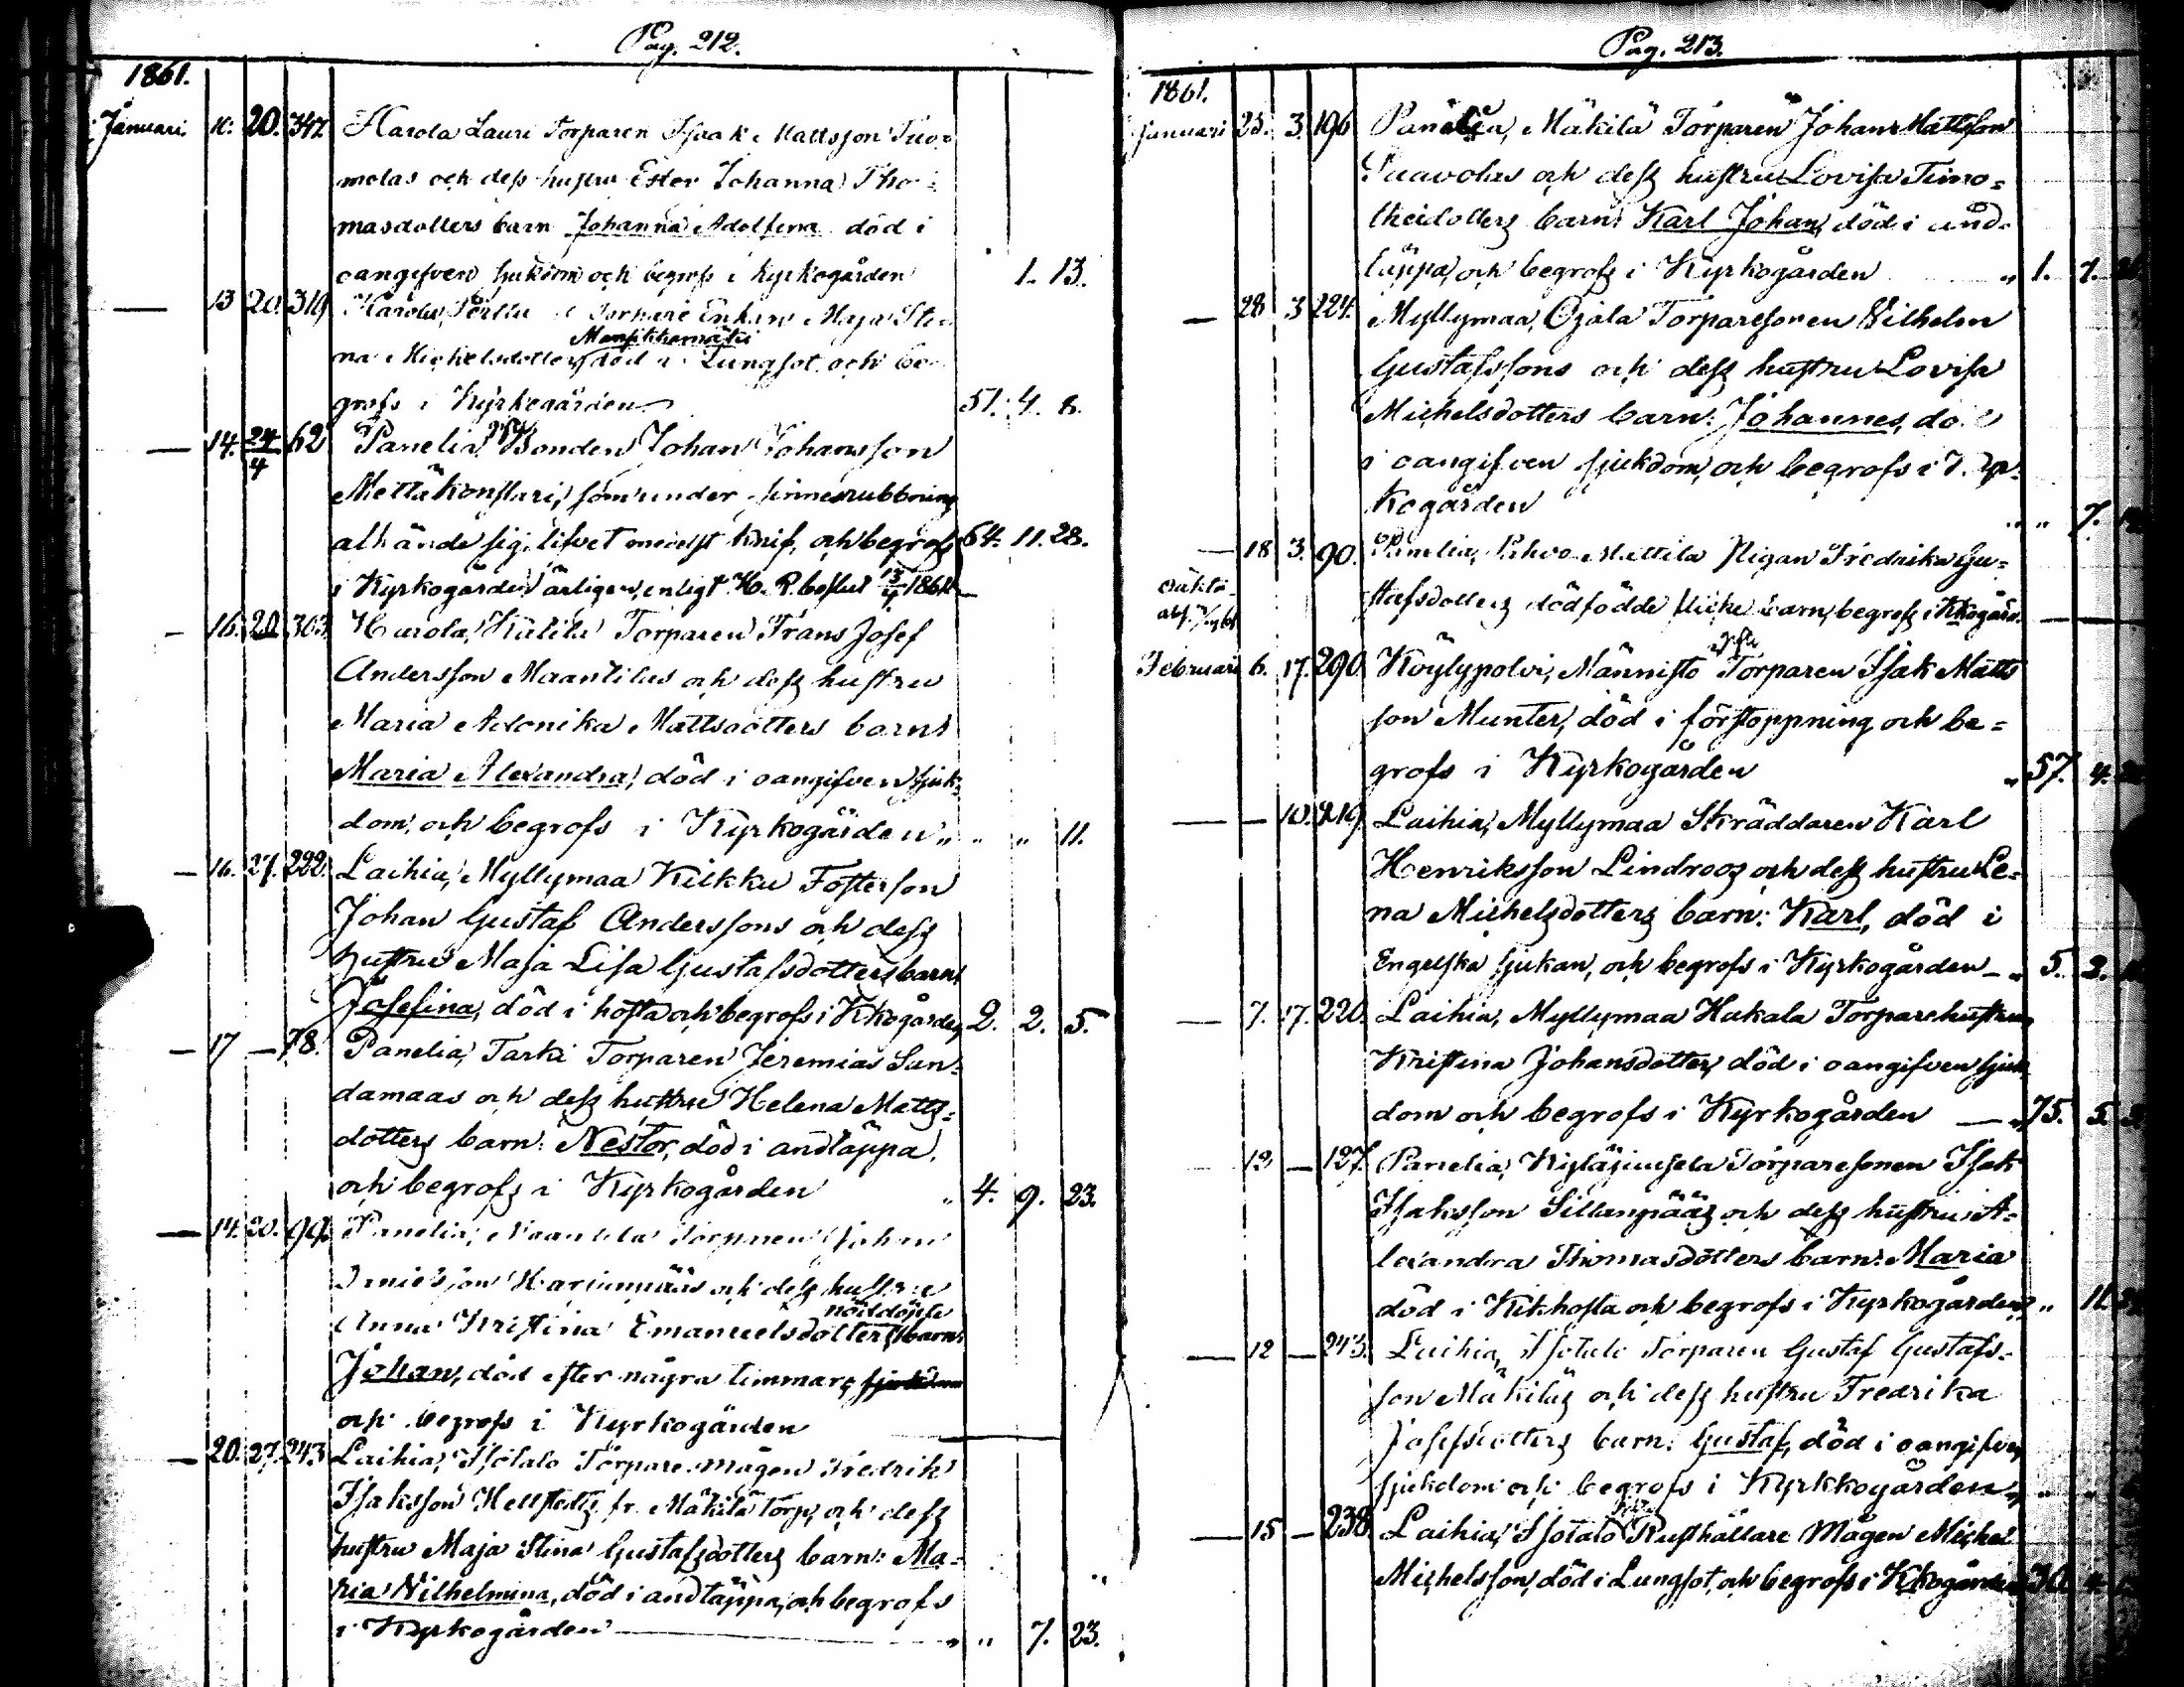 Pag. 212.
1861.
Januari. 10. 20. 347. Harola Lauri Torparen Isaak Mattsson Tuo-
molas och dess hustru Ester Johanna Tho-
masdotters barn Johanna Adolfina död i
oangifven sjukdom och begrofs i kyrkogården 1. 13.
— 13 20. 319 Harola, Perttu Torpare Enkan Maja Sti-
na Michelsdotter död i Lungsot och be-
grofs i Kyrkogården 57. 4. 8.
— 14. 24/4 62 Panelia, Bonden Johan Johansson
Mettäkonstari, som under sinnesrubbning
afhände sig lifvet medelst knif, och begrofs 64. 11. 28.
i Kyrkogården ärligen, enligt H. R. beslut 13/4 1861.
— 16. 20 303. Harola, Katila Torparen Frans Josef
Andersson Maantilas och dess hustru
Maria Adonika Mattsdotters barn
Maria Alexandra, död i oangifven sjuk-
dom, och begrofs i Kyrkogården „ „ „ 11.
— 16. 27. 222. Laihia, Myllymaa Kilkku Fosterson
Johan Gustaf Anderssons och dess
hustrus Maja Lisa Gustafsdotters barn
Josefina, död i hosta och begrofs i Kkogården 2. 2. 5.
— 17 — 78. Panelia, Tarki Torparen Jeremias San-
damaas och dess hustru Helena Matts-
dotters barn: Nestor, död i andtäppa,
och begrofs i Kyrkogården „ 4. 9. 23.
— 14. 20. 99. Panelia, Naantila Torparen Johan
och dess hustru
nöddöpte
Anna Kristina Emanuelsdotters barn
Johan, död efter några timmars
och begrofs i Kyrkogården
— 20. 27. 243 Laihia, Isotalo Torpare mågen Fredrik
Isaksson Hellstedts fr. Mäkilä torp, och dess
hustru Maja Stina Gustafsdotters barn: Ma-
ria Wilhelmina, död i andtäppa, och begrofs
i Kyrkogården — „ „ 7. 23.
Pag. 213.
1861.
januari 25. 3. 196 Panelia, Mäkilä Torparen Johan Mattsson
Suavolas och dess hustru Lovisa Timo-
theidotters barn: Karl Johan, död i and-
täppa, och begrofs i Kyrkogården „ 1. 7.
— 28 3 224. Myllymaa, Ojala Torparesonen Wilhelm
Gustafssons och dess hustru Lovisa
Michelsdotters barn: Johannes, död
i oangifven sjukdom, och begrofs i Kyr-
kogården „ „ 7.
— 18 3. 90. Panelia, Mattila Pigan Fredrika Gu-
stafsdotters dödfödde flicke barn, begrofs i Kkogård.
oäkta
Februari 6. 17. 290. Köylypolvi, Männisto Torparen Isak Matts
son Munter, död i förstoppning och be-
grofs i Kyrkogården „ 57. 4.
— — 10. 219. Laihia, Myllymaa Skräddaren Karl
Henriksson Lindroos och dess hustru Le-
na Michelsdotters barn: Karl, död i
Engelska sjukan, och begrofs i Kyrkogården — „ 5. 2.
— 7. 17. 220. Laihia, Myllymaa Hukala Torparehustrun
Kristina Johansdotter, död i oangifven sjuk-
dom och begrofs i Kyrkogården — „ 75. 5.
12 — 127. Panelia, Torparesonen Isak
Isaksson Sillanpääs och dess hustru A-
lexandra Thomasdotters barn: Maria
död i Kikhosta och begrofs i Kyrkogården „ „ 11.
— 12 — 243. Laihia, Isotalo Torparen Gustaf Gustafs-
son Mäkiläs och dess hustru Fredrika
Josefsdotters barn: Gustaf, död i oangifven
sjukdom och begrofs i Kyrkkogården „
— 15 — 238. Laihia, Isotalo Rusthållare Mågen Michel
Michelsson, död i Lungsot, och begrofs i Kkogården 30. 4.